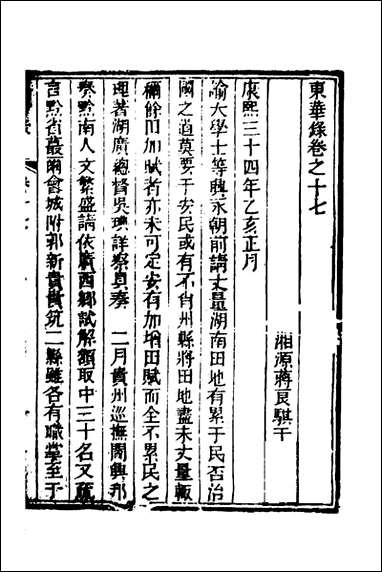 東華錄卷之十七
湘源蔣良騏千
康熙三十四年乙亥正月
諭大學士等興永朝前請丈量湖南田地有累于民否治
國之道莫要于安民或有不肖州縣將田地盡未丈量輒
稱餘田加賦者亦未可定安有加增田賦而全不累民之
理著湖廣總督吳璵詳察具奏 二月貴州巡撫閻興邦
奏黔南人文繁盛請依廣西鄉試解額取中三十名又疏
言黔省叢爾會城附郭新貴貴筑二縣雖各有職掌至于